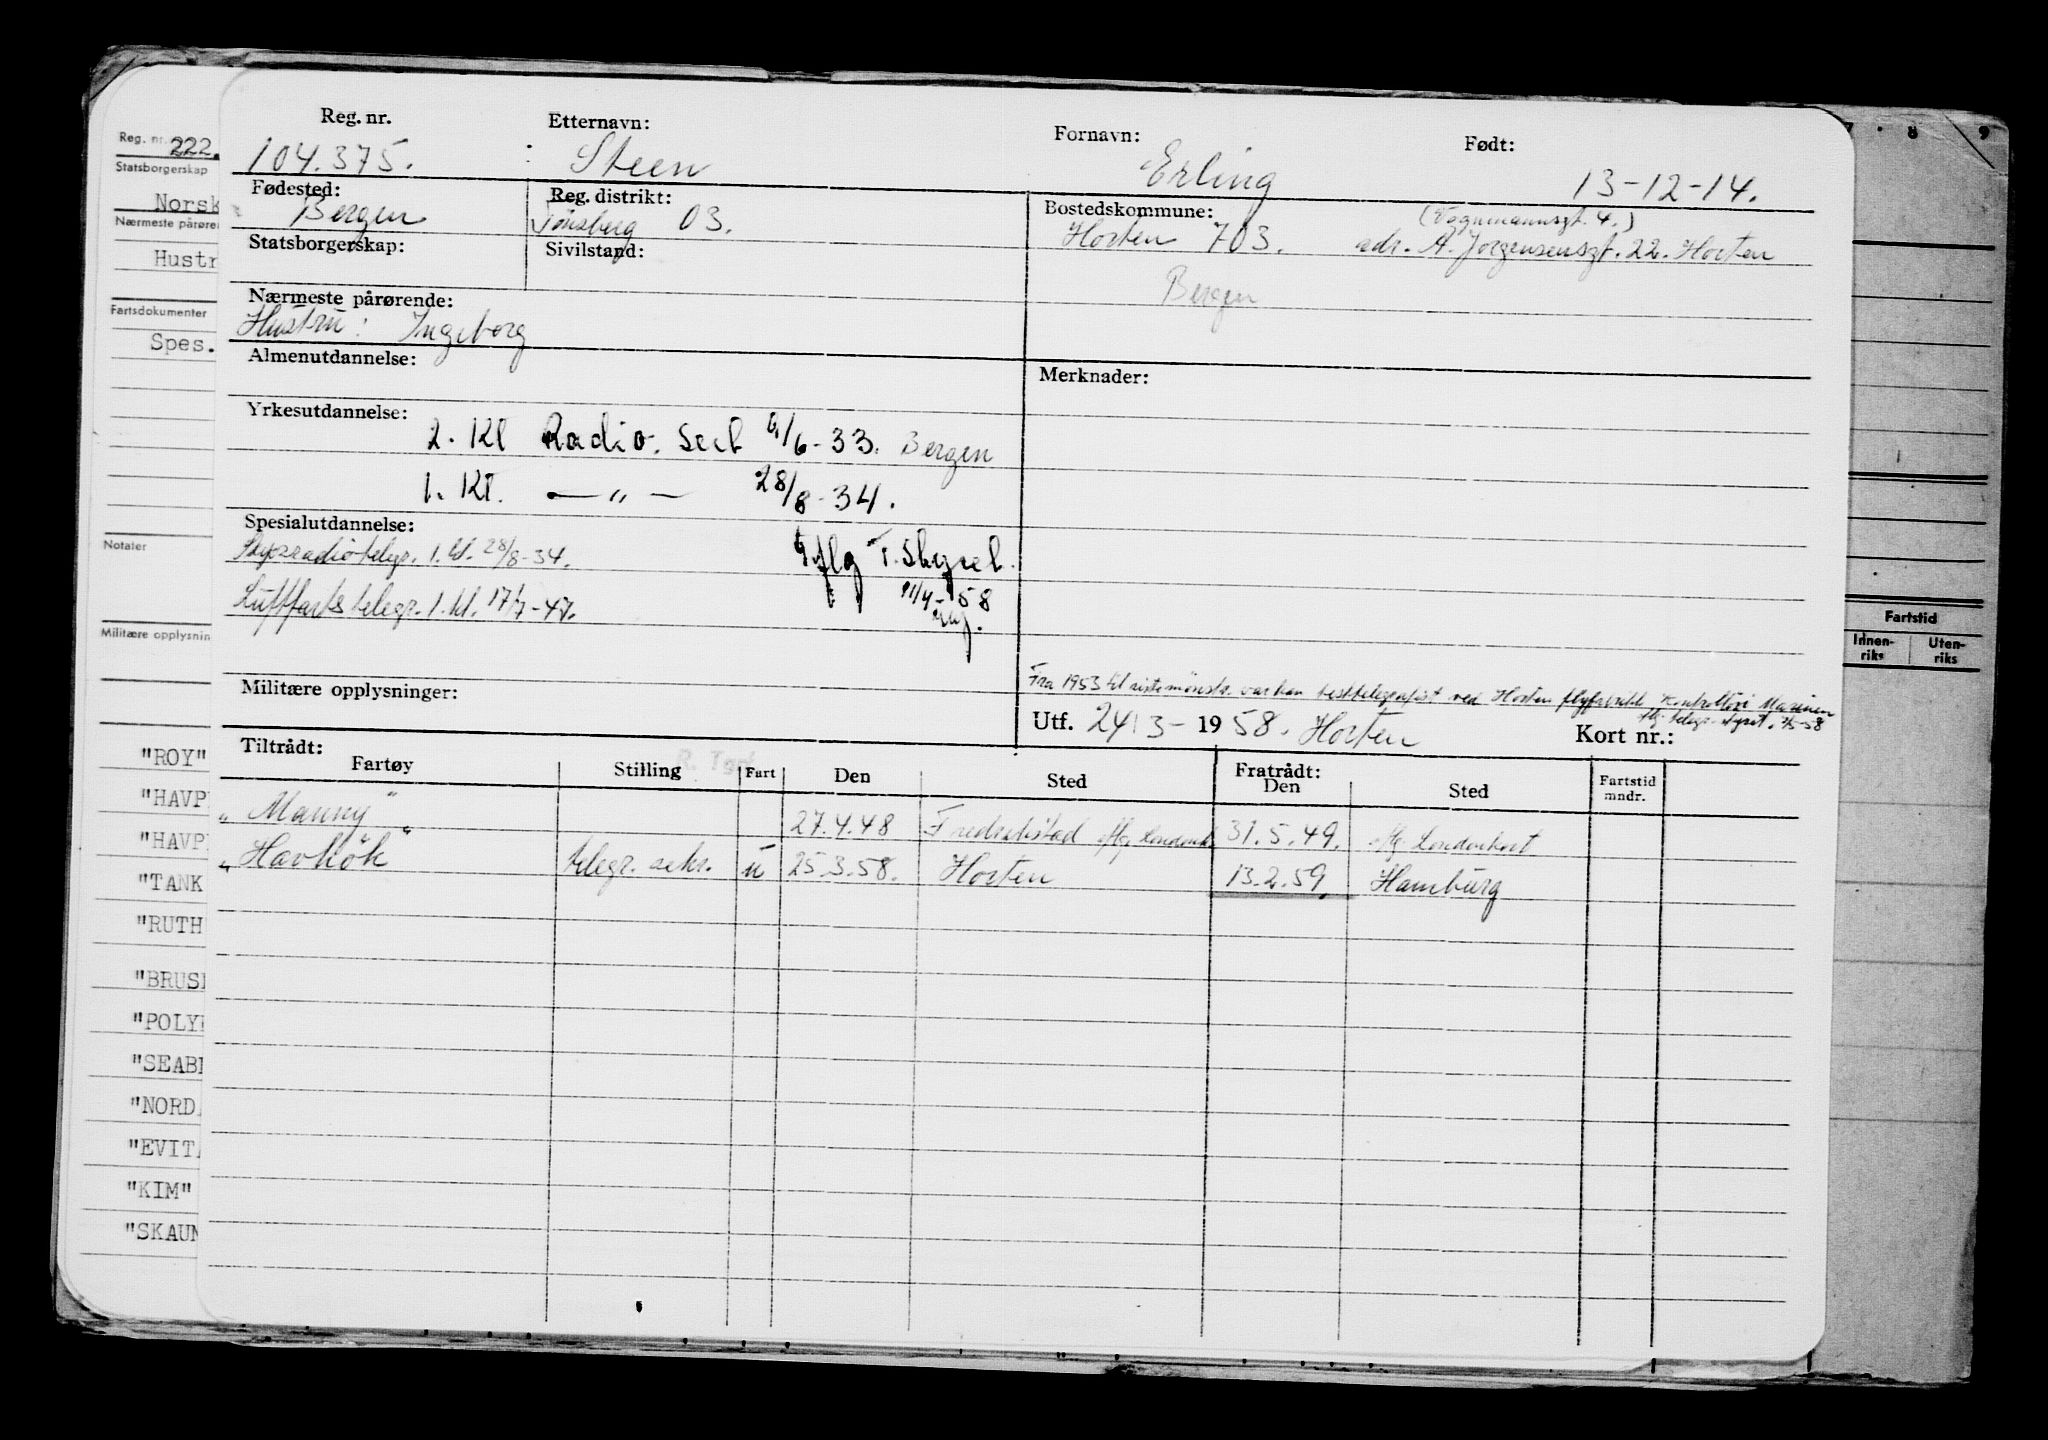 Reg. nr. Etternavn: Fornavn: Født:
104.375. Steen Erling 13-12-14.
Fødested: Reg. distrikt: Bostedskommune:
Bergen Tønsberg 03. Horten 703. adr. A. Jørgensensgt. 22. Horten
Statsborgerskap: Sivilstand:
Bergen
Nærmeste pårørende:
Hustru: Ingeborg
Almenutdannelse: Merknader:
Yrkesutdannelse:
2. Kl Radio. Sert 6/6-33. Bergen
1. Kl. — " — 28/8-34.
Spesialutdannelse:
Skipsradiotelegr. 1. kl. 28/8-34. iflg T. Styret.
Luftfartstelegr. 1. kl. 17/7-47. 11/4-58
Fra 1953 til siste mønstr. var han ved Horten Marinen
Militære opplysninger: Utf. 24/3-1958. Horten Kort nr.:
Tiltrådt: Fratrådt:
Fartøy Stilling Fart Den Sted Den Sted Fartstid mndr.
"Manny" 27.4.48 Fredrikstad iflg. Londonk. 31.5.49. iflg. Londonkort
"Havkök" telegr. sekr. u 25.3.58. Horten 13.2.59. Hamburg
Reg. nr. 222.
Statsborgerskap
Norsk
Nærmeste pårøren
Hustr
Fartsdokumenter
Spes.
Notater
Militære opplysnin
"ROY"
"HAVP
"HAVP
"TANK
"RUTH
"BRUS
"POLY
"SEAB
"NORD
"EVIT
"KIM"
"SKAUN
8 9
Fartstid
Innen-riks Uten-riks